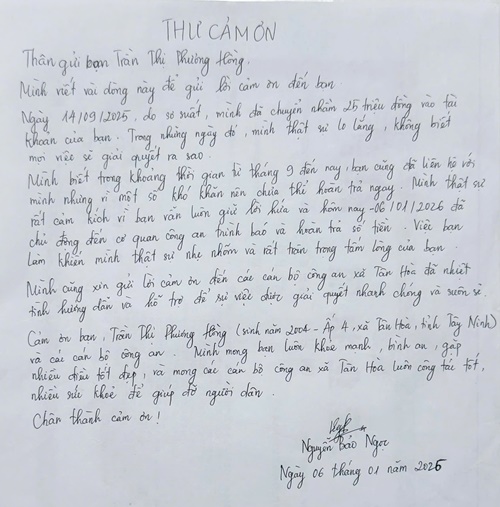 THƯ CẢM ƠN
Thân gửi bạn Trần Thị Phương Hồng.
Mình viết vài dòng này để gửi lời cảm ơn đến bạn.
Ngày 14/09/2025, do sơ suất, mình đã chuyển nhầm 25 triệu đồng vào tài
khoản của bạn. Trong những ngày đó, mình thật sự lo lắng, không biết
mọi việc sẽ giải quyết ra sao.
Mình biết trong khoảng thời gian từ tháng 9 đến nay, bạn cũng đã liên hệ với
mình nhưng vì một số khó khăn nên chưa thể hoàn trả ngay. Mình thật sự
rất cảm kích vì bạn vẫn luôn giữ lời hứa và hôm nay - 06/01/2026 đã
chủ động đến cơ quan công an trình báo và hoàn trả số tiền. Việc bạn
làm khiến mình thật sự nhẹ nhõm và rất trân trọng tấm lòng của bạn.
Mình cũng xin gửi lời cảm ơn đến các cán bộ công an xã Tân Hòa đã nhiệt
tình hướng dẫn và hỗ trợ để sự việc được giải quyết nhanh chóng và suôn sẻ.
Cảm ơn bạn, Trần Thị Phương Hồng (sinh năm 2004 - Ấp 4, xã Tân Hòa, tỉnh Tây Ninh)
và các cán bộ công an. Mình mong bạn luôn khỏe mạnh, bình an, gặp
nhiều điều tốt đẹp, và mong các cán bộ công an xã Tân Hòa luôn công tác tốt,
nhiều sức khoẻ để giúp đỡ người dân.
Chân thành cảm ơn!
Nguyễn Bảo Ngọc
Ngày 06 tháng 01 năm 2026